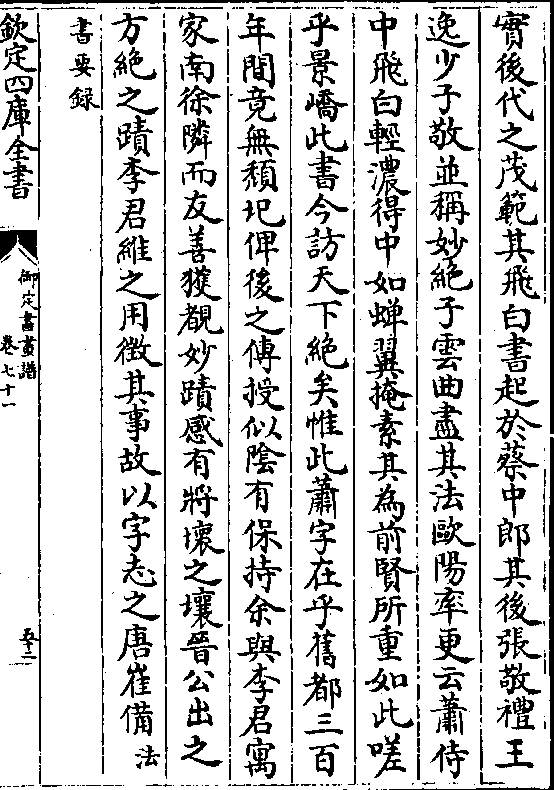 實後代之茂範其飛白書起於蔡中郎其後張敬禮王
逸少子敬並稱妙絶子雲曲盡其法歐陽率更云蕭侍
中飛白輕濃得中如蟬翼掩素其為前賢所重如此嗟
乎景嶠此書今訪天下絶矣惟此蕭字在乎舊都三百
年間竟無頽圮俾後之傳授似陰有保持余與李君寓
家南徐隣而友善獲覩妙蹟感有將壞之壤晉公出之
方絶之蹟李君維之用徴其事故以字志之唐崔備法
書要録
欽定四庫全書
御定書畫譜
卷七十一
五十二